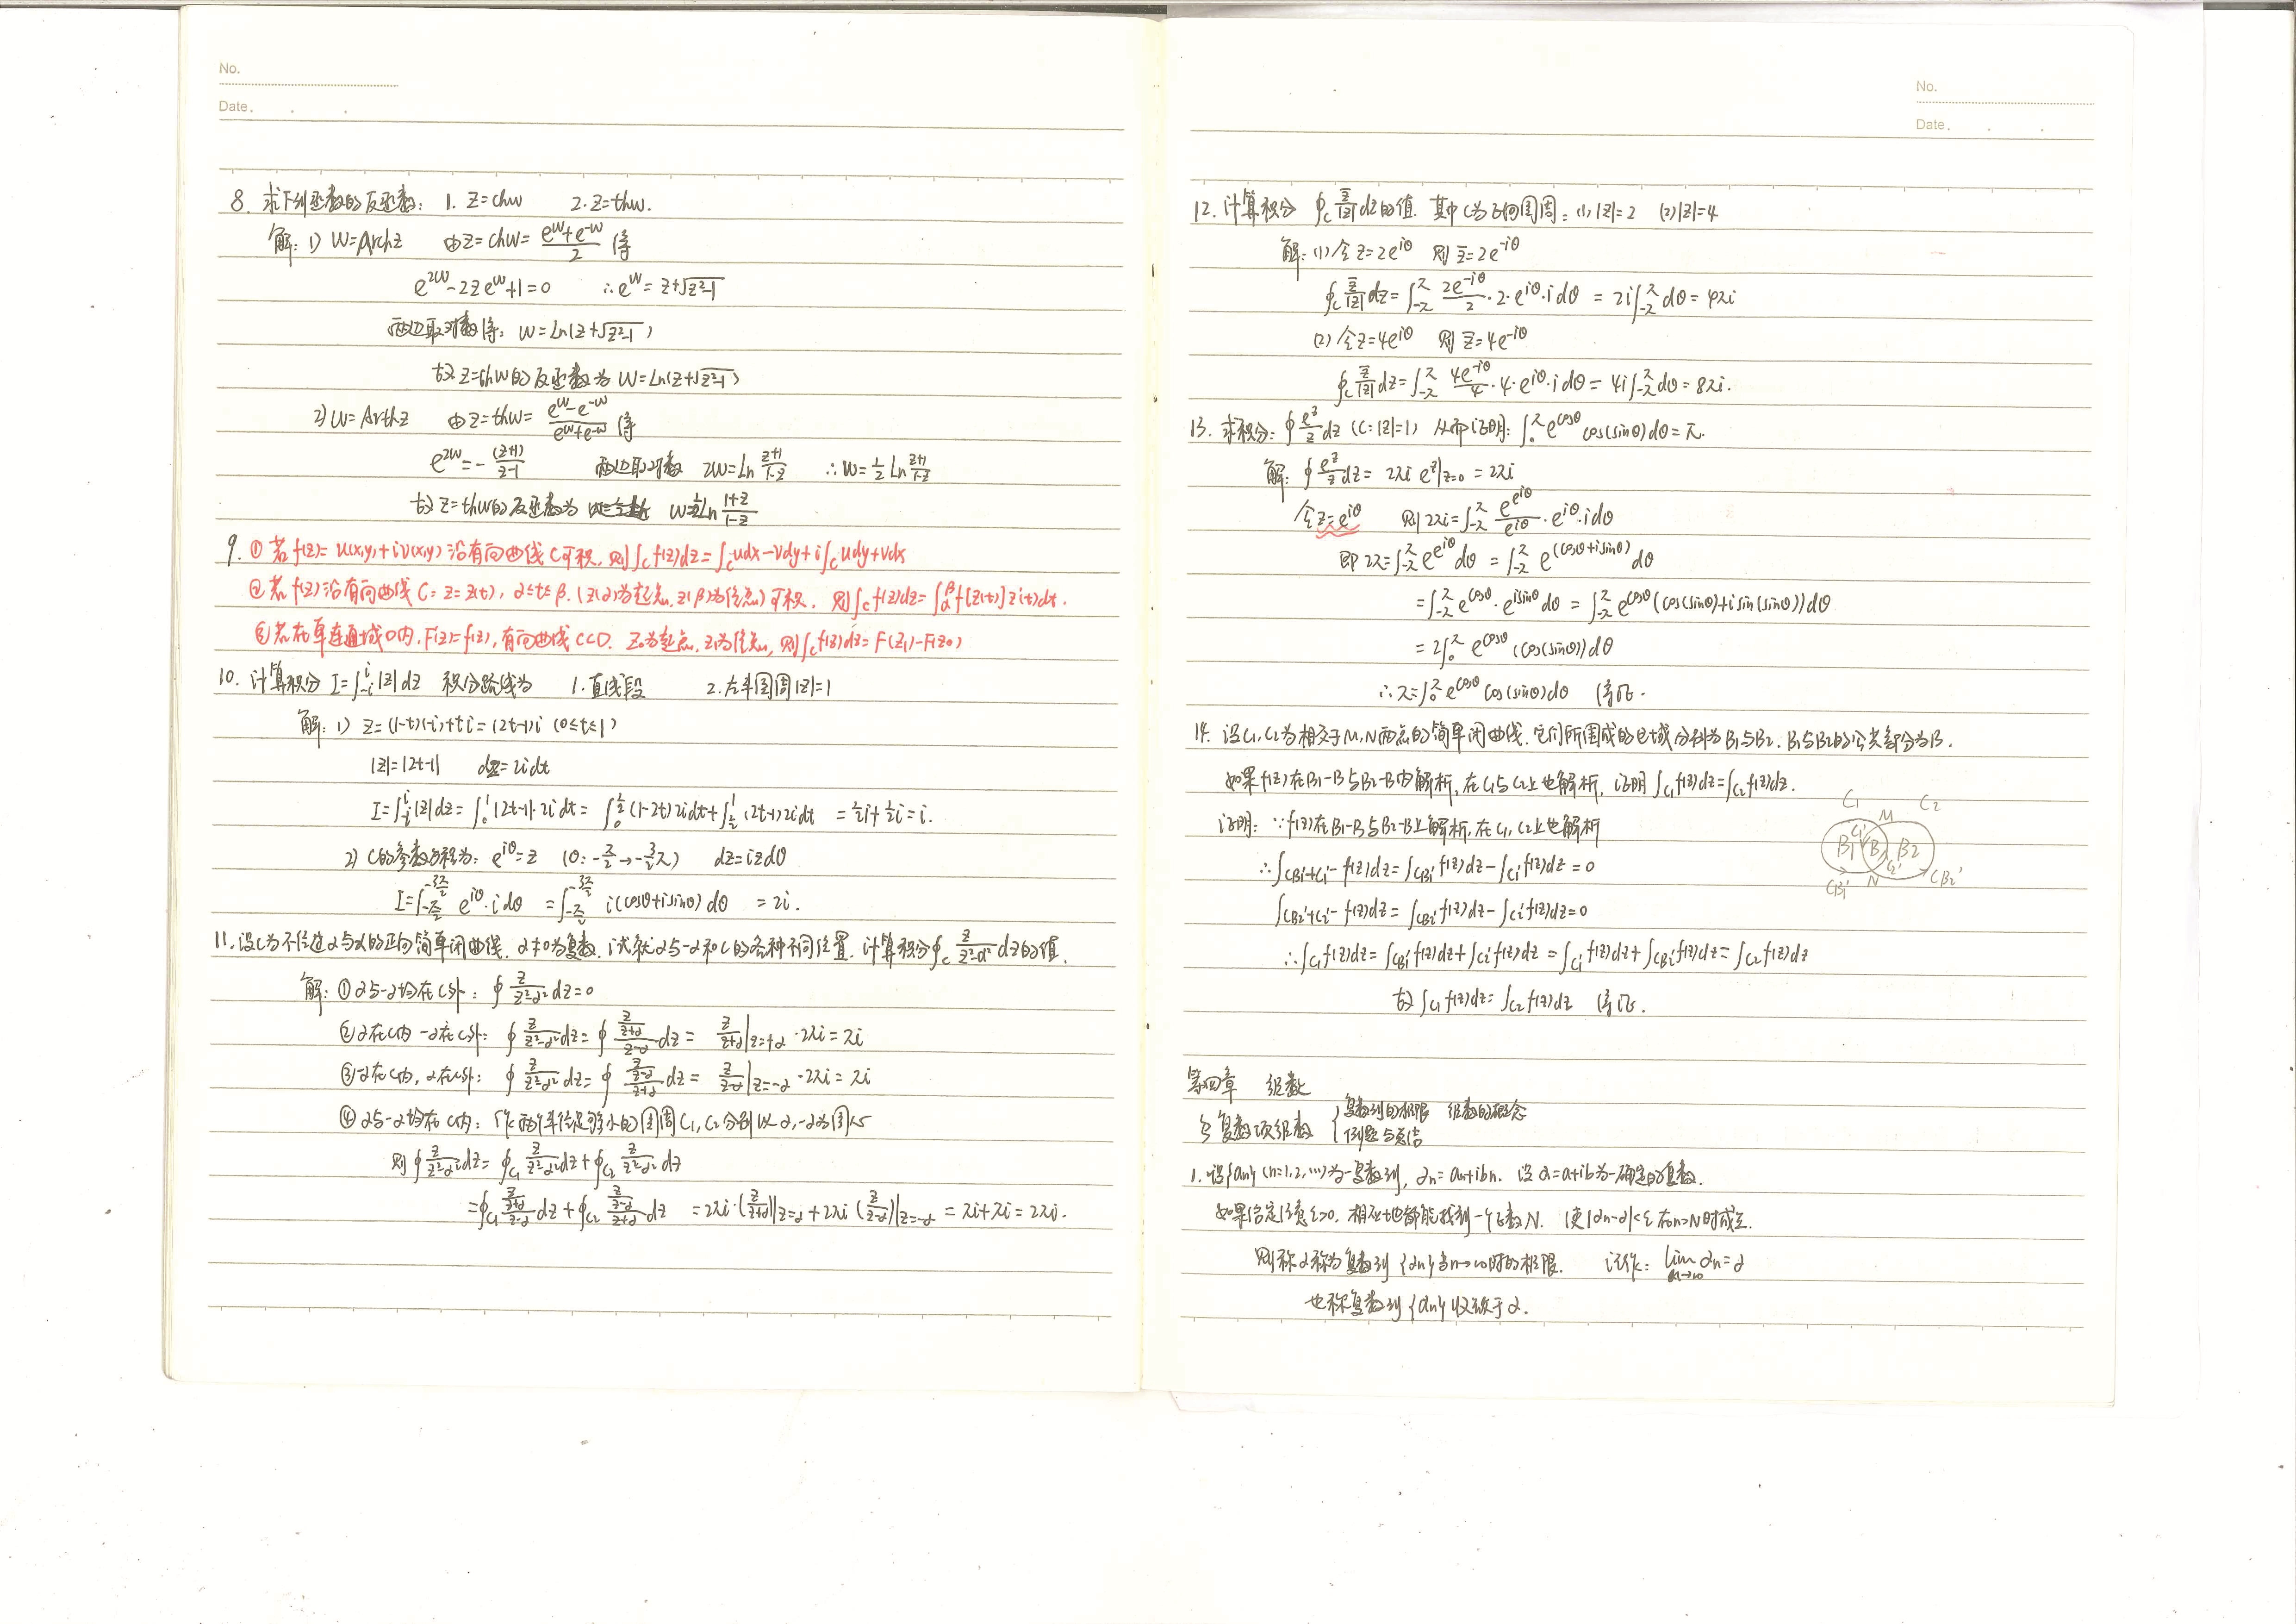 No.
Date.
8. 求下列函数的反函数: 1. z=chw 2. z=thw.
解: 1) w=Archz 由z=chw= (e^w+e^-w)/2 得
e^2w-2ze^w+1=0 ∴e^w=z+√(z²-1)
两边取对数得: w=Ln(z+√(z²-1))
故z=thw的反函数为 w=Ln(z+√(z²-1))
2) w=Arthz 由z=thw= (e^w-e^-w)/(e^w+e^-w) 得
e^2w=-(z+1)/(z-1) 两边取对数 2w=Ln (z+1)/(1-z) ∴w=1/2 Ln (z+1)/(1-z)
故z=thw的反函数为 w=1/2 Ln (1+z)/(1-z)
9. ①若f(z)=u(x,y)+iv(x,y)沿有向曲线C可积, 则∫_C f(z)dz=∫_C udx-vdy+i∫_C udy+vdx
②若f(z)沿有向曲线C: z=z(t), α≤t≤β. (z(α)为起点, z(β)为终点)可积. 则∫_C f(z)dz=∫_α^β f[z(t)]z'(t)dt.
③若在单连通域D内, F'(z)=f(z), 有向曲线C⊂D. z₀为起点, z₁为终点, 则∫_C f(z)dz=F(z₁)-F(z₀)
10. 计算积分 I=∫_-i^i |z|dz 积分路线为 1. 直线段 2. 左半圆周|z|=1
解: 1) z=(1-t)(-i)+ti=(2t-1)i (0≤t≤1)
|z|=|2t-1| dz=2idt
I=∫_-i^i |z|dz=∫_0^1 |2t-1|·2idt=∫_0^½ (1-2t)2idt+∫_½^1 (2t-1)2idt =½i+½i=i.
2) C的参数方程为: e^iθ=z (θ: -π/2→-3/2π) dz=izdθ
I=∫_-π/2^-3π/2 e^iθ·idθ =∫_-π/2^-3π/2 i(cosθ+isinθ)dθ =2i.
11. 设C为不经过α与-α的正向简单闭曲线. α≠0为复数. 试就α与-α和C的各种不同位置. 计算积分∮_C z/(z²-α²) dz的值.
解: ①α与-α均在C外: ∮ z/(z²-α²) dz=0
②α在C内 -α在C外: ∮ z/(z²-α²) dz=∮ (z/(z+α))/(z-α) dz= z/(z+α)|z=+α ·2πi=πi
③-α在C内, α在C外: ∮ z/(z²-α²) dz=∮ (z/(z-α))/(z+α) dz= z/(z-α)|z=-α ·2πi=πi
④α与-α均在C内: 作两个半径足够小的圆周C₁, C₂分别以α, -α为圆心
则∮ z/(z²-α²) dz=∮_C₁ z/(z²-α²) dz+∮_C₂ z/(z²-α²) dz
=∮_C₁ (z/(z+α))/(z-α) dz+∮_C₂ (z/(z-α))/(z+α) dz =2πi·(z/(z+α))|z=α+2πi(z/(z-α))|z=-α=πi+πi=2πi.
No.
Date.
12. 计算积分 ∮_C z̄/|z| dz的值. 其中C为正向圆周: (1)|z|=2 (2)|z|=4
解: (1)令z=2e^iθ 则z̄=2e^-iθ
∮_C z̄/|z| dz=∫_-π^π 2e^-iθ/2 ·2·e^iθ·idθ=2i∫_-π^π dθ=4πi
(2)令z=4e^iθ 则z̄=4e^-iθ
∮_C z̄/|z| dz=∫_-π^π 4e^-iθ/4 ·4·e^iθ·idθ=4i∫_-π^π dθ=8πi.
13. 求积分: ∮ e^z/z dz (C:|z|=1) 从而证明: ∫_0^π e^cosθ cos(sinθ)dθ=π.
解: ∮ e^z/z dz= 2πi e^z|z=0 =2πi
令z=e^iθ 则2πi=∫_-π^π e^(e^iθ)/e^iθ ·e^iθ·idθ
即2π=∫_-π^π e^(e^iθ) dθ =∫_-π^π e^(cosθ+isinθ) dθ
=∫_-π^π e^cosθ·e^isinθ dθ=∫_-π^π e^cosθ(cos(sinθ)+isin(sinθ))dθ
=2∫_0^π e^cosθ (cos(sinθ))dθ
∴π=∫_0^π e^cosθ cos(sinθ)dθ 得证.
14. 设C₁,C₂为相交于M,N两点的简单闭曲线. 它们所围成的区域分别为B₁与B₂. B₁与B₂的公共部分为B.
如果f(z)在B₁-B与B₂-B内解析, 在C₁与C₂上也解析, 证明∫_C₁ f(z)dz=∫_C₂ f(z)dz.
C₁ M C₂
C₁' B₁ B B₂ C₂'
CB₁' N CB₂'
证明: ∵f(z)在B₁-B与B₂-B上解析, 在C₁, C₂上也解析
∴∫_CB₁'+C₁'- f(z)dz=∫_CB₁' f(z)dz-∫_C₁' f(z)dz=0
∫_CB₂'+C₂'- f(z)dz=∫_CB₂' f(z)dz-∫_C₂' f(z)dz=0
∴∫_C₁ f(z)dz=∫_CB₁' f(z)dz+∫_C₂' f(z)dz=∫_C₁' f(z)dz+∫_CB₂' f(z)dz=∫_C₂ f(z)dz
故∫_C₁ f(z)dz=∫_C₂ f(z)dz 得证.
第四章 级数
§复数项级数 { 复数列的极限 级数的概念
例题与总结
1. 设{αn}(n=1,2,…)为一复数列, αn=an+ibn. 设α=a+ib为一确定的复数.
如果给定任意ε>0, 相应地都能找到一个正数N. 使|αn-α|<ε在n>N时成立.
则称α称为复数列{αn}当n→∞时的极限. 记作: lim_n→∞ αn=α
也称复数列{αn}收敛于α.